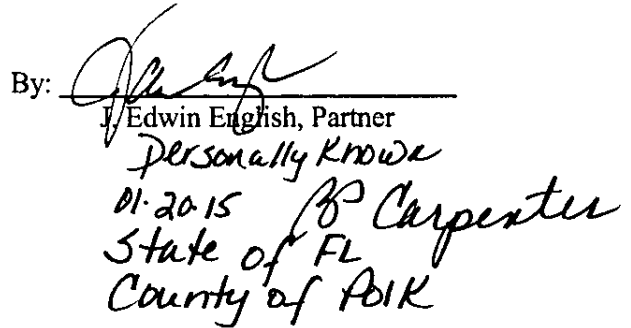 By:
J. Edwin English, Partner
Personally Known
01-20-15 Carpenter
State of FL
County of Polk